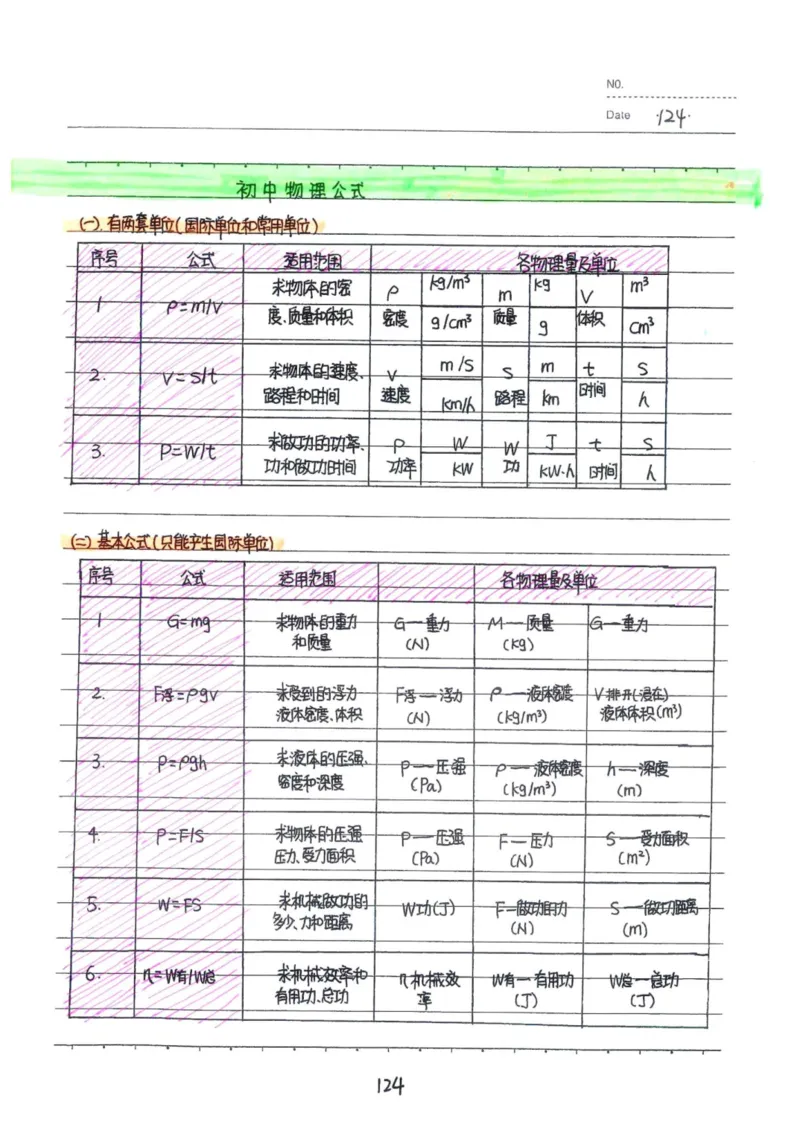 NO.
Date ·124·
初中物理公式
(一). 有两套单位(国际单位和常用单位)
序号 公式 适用范围 各物理量及单位
1 ρ=m/v 求物体的密度、质量和体积 ρ 密度 kg/m³ g/cm³ m 质量 kg g V 体积 m³ cm³
2. V=s/t 求物体的速度、路程和时间 V 速度 m/s km/h S 路程 m km t 时间 S h
3. P=W/t 求做功的功率、功和做功时间 P 功率 W kW W 功 J kW·h t 时间 S h
(二) 基本公式(只能产生国际单位)
序号 公式 适用范围 各物理量及单位
1 G=mg 求物体的重力和质量 G—重力 (N) M—质量 (kg) G—重力
2. F浮=ρgv 求受到的浮力液体密度、体积 F浮—浮力 (N) ρ—液体密度 (kg/m³) V排开(浸在)液体体积(m³)
3. P=ρgh 求液体的压强、密度和深度 P—压强 (Pa) ρ—液体密度 (kg/m³) h—深度 (m)
4. P=F/S 求物体的压强压力、受力面积 P—压强 (Pa) F—压力 (N) S—受力面积 (m²)
5. W=FS 求机械做功的多少、力和距离 W功(J) F—做功的力 (N) S—做功距离 (m)
6. η=W有/W总 求机械效率和有用功、总功 η机械效率 W有—有用功 (J) W总—总功 (J)
124